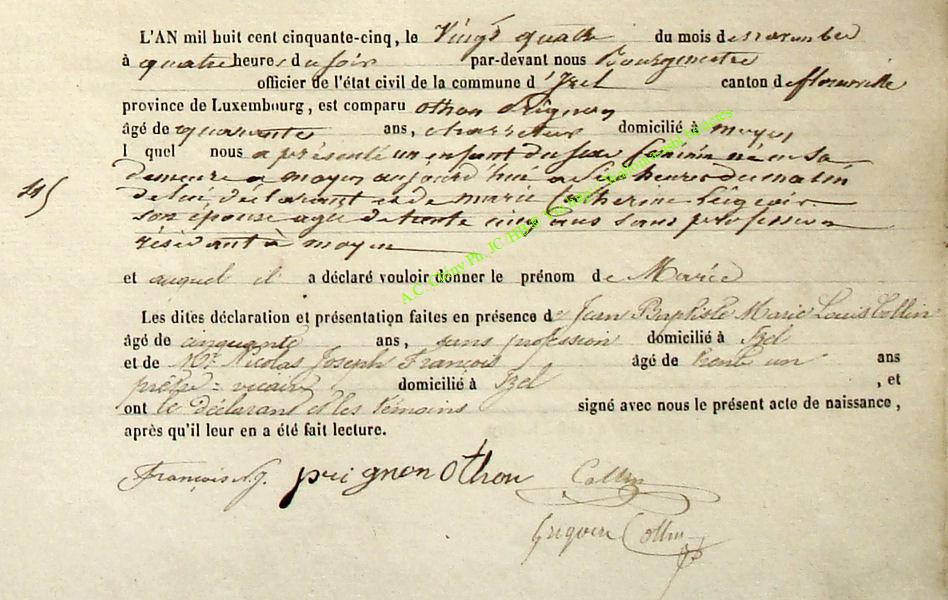 L'AN mil huit cent cinquante-cinq, le Vingt quatre du mois de novembre
à quatre heures du soir par-devant nous Bourgmestre
officier de l'état civil de la commune d'Izel canton de florenville
province de Luxembourg, est comparu othon Prignon
âgé de quarante ans, charretier domicilié à moyen
l quel nous a présenté un enfant du sexe féminin né en sa
demeure a moyen aujourd'hui a six heures du matin
de lui déclarant et de marie Catherine
son épouse agée de trente cinq ans sans profession
résidant à moyen
145
et auquel il a déclaré vouloir donner le prénom de Marie
Les dites déclaration et présentation faites en présence de Jean Baptiste Marie Louis Collin
âgé de cinquante ans, sans profession domicilié à Izel
et de Mr Nicolas Joseph François âgé de trente un ans
prêtre-vicaire domicilié à Izel , et
ont le déclarant et les témoins signé avec nous le présent acte de naissance,
après qu'il leur en a été fait lecture.
François N.J. prignon Othon Collin
Grégoire Collin